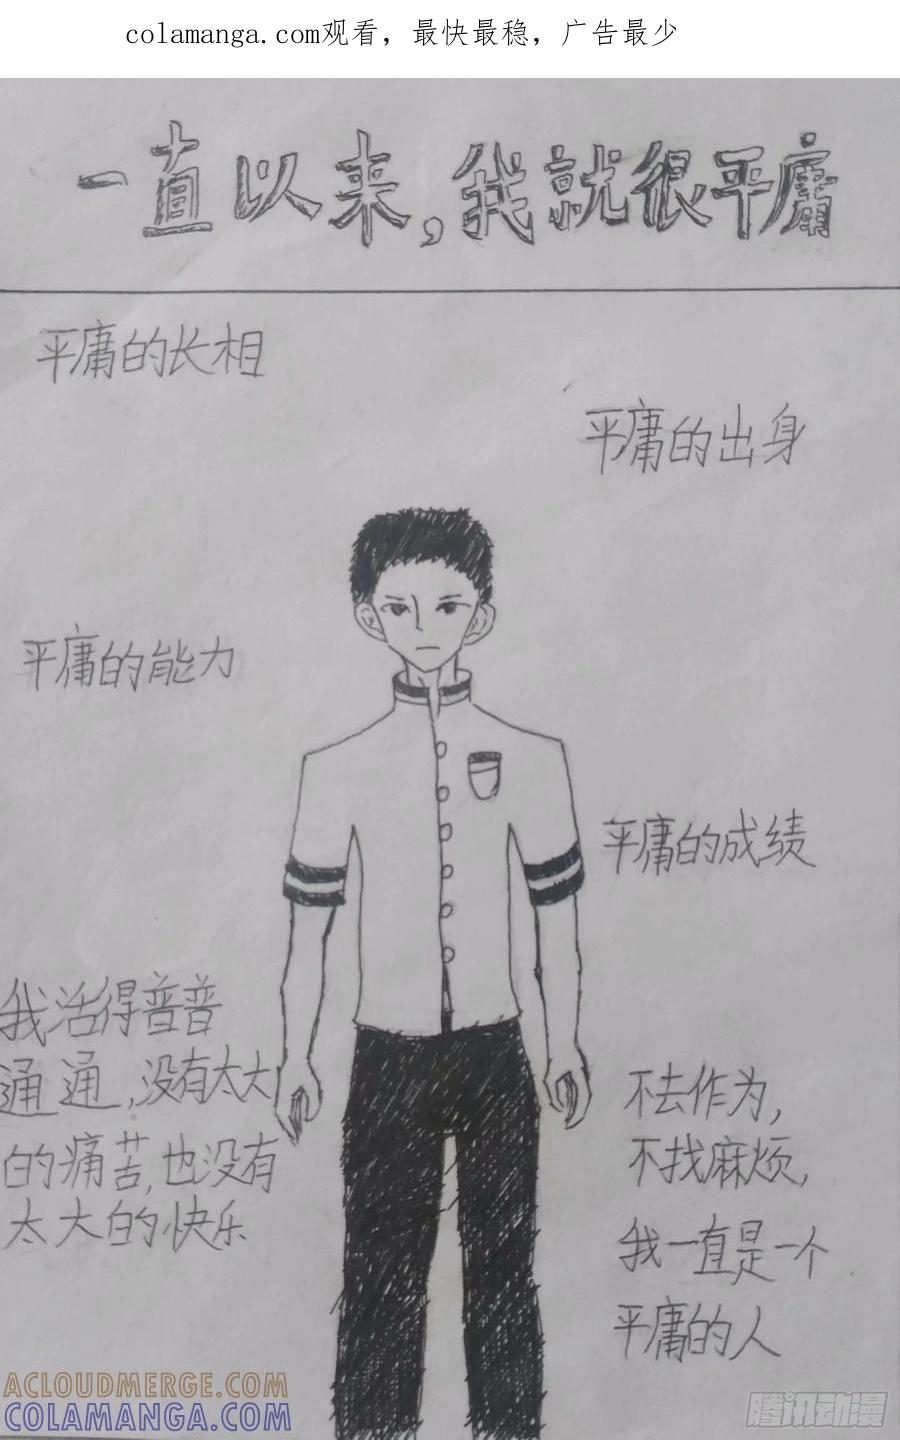 colamanga.com观看，最快最稳，广告最少
一直以来，我就很平庸
平庸的长相
平庸的出身
平庸的能力
平庸的成绩
我活得普普
通通，没有太大
的痛苦，也没有
太大的快乐
不去作为，
不找麻烦，
我一直是一个
平庸的人
ACLOUDMERGE.COM
COLAMANGA.COM
腾讯动漫